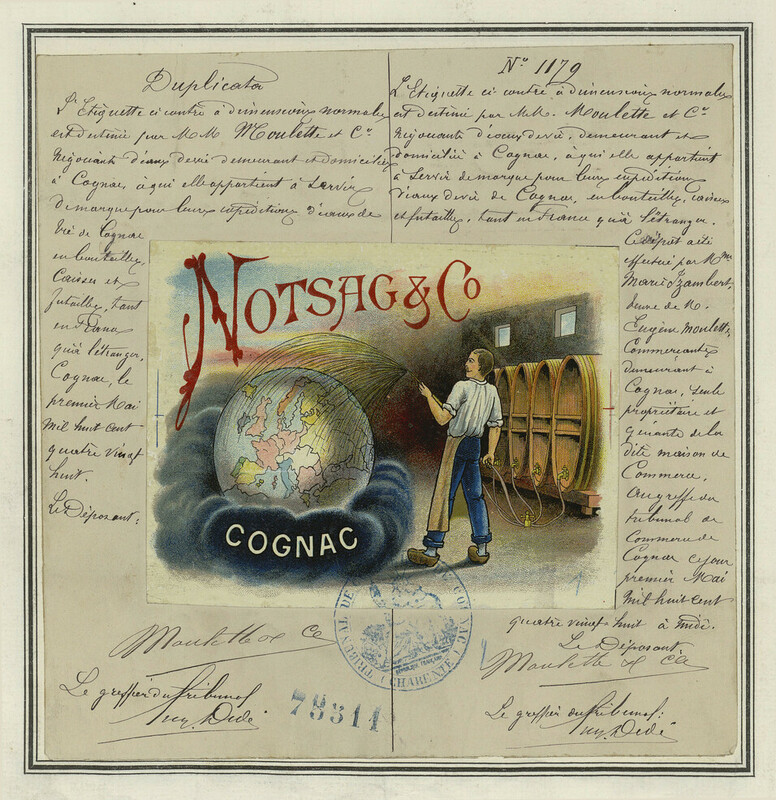 Duplicata
L'Etiquette ci contre à dimensions normales
est destiné par MM Moulette et Cie
Négociants d'eaux de vie demeurant et domiciliés
à Cognac, à qui elle appartient à servir
de marque pour leurs expéditions d'eaux de
Vie de Cognac
en bouteilles,
Caisses et
futailles, tant
en France
qu'à l'étranger.
Cognac, le
premier Mai
Mil huit cent
quatre vingt
huit.
Le Déposant:
Moulette & Cie
Le greffier du Tribunal
No 1179
L'Etiquette ci contre à dimensions normales
est destiné par MM. Moulette et Cie
Négociants d'eaux de vie, demeurant et
domiciliés à Cognac, à qui elle appartient
à servir de marque pour leurs expéditions
d'eaux de vie de Cognac, en bouteilles, caisses
et futailles, tant en France qu'à l'étranger.
Ce dépôt a été
effectué par Mme
Marie Izambert,
veuve de M.
Eugène Moulette,
Commerçante
demeurant à
Cognac, seule
propriétaire et
gérante de la
dite maison de
Commerce,
au greffe du
tribunal de
Commerce de
Cognac ce jour
premier Mai
Mil huit cent
quatre vingt huit à midi.
Le Déposant
Moulette & Cie
Le greffier du Tribunal:
NOTSAG & Co
COGNAC
TRIBUNAL DE COGNAC
(CHARENTE)
78311